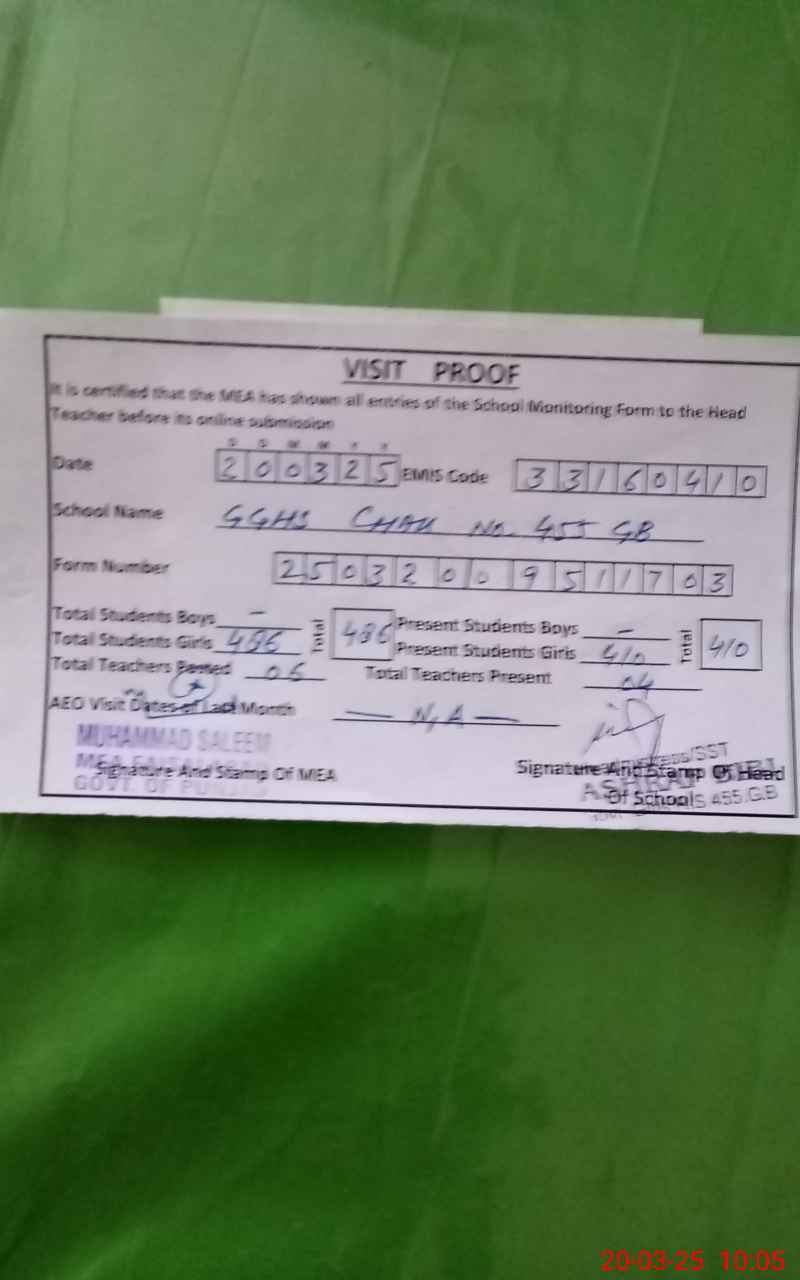 VISIT PROOF
It is certified that the MEA has shown all entries of the School Monitoring Form to the Head
Teacher before its online submission
D D M M Y Y
Date 200325 EMIS Code 33160410
School Name GGHS CHAK No. 455 GB
Form Number 25032009511703
Total Students Boys - Total Present Students Boys - Total
Total Students Girls 486 486 Present Students Girls 410 410
Total Teachers Posted Total Teachers Present 04
AEO Visit Dates of Last Month N,A
MUHAMMAD SALEEM
MEA
Signature And Stamp Of MEA Signature And Stamp Of Head
GOVT. OF Of Schools 455.G.B
20-03-25 10:05